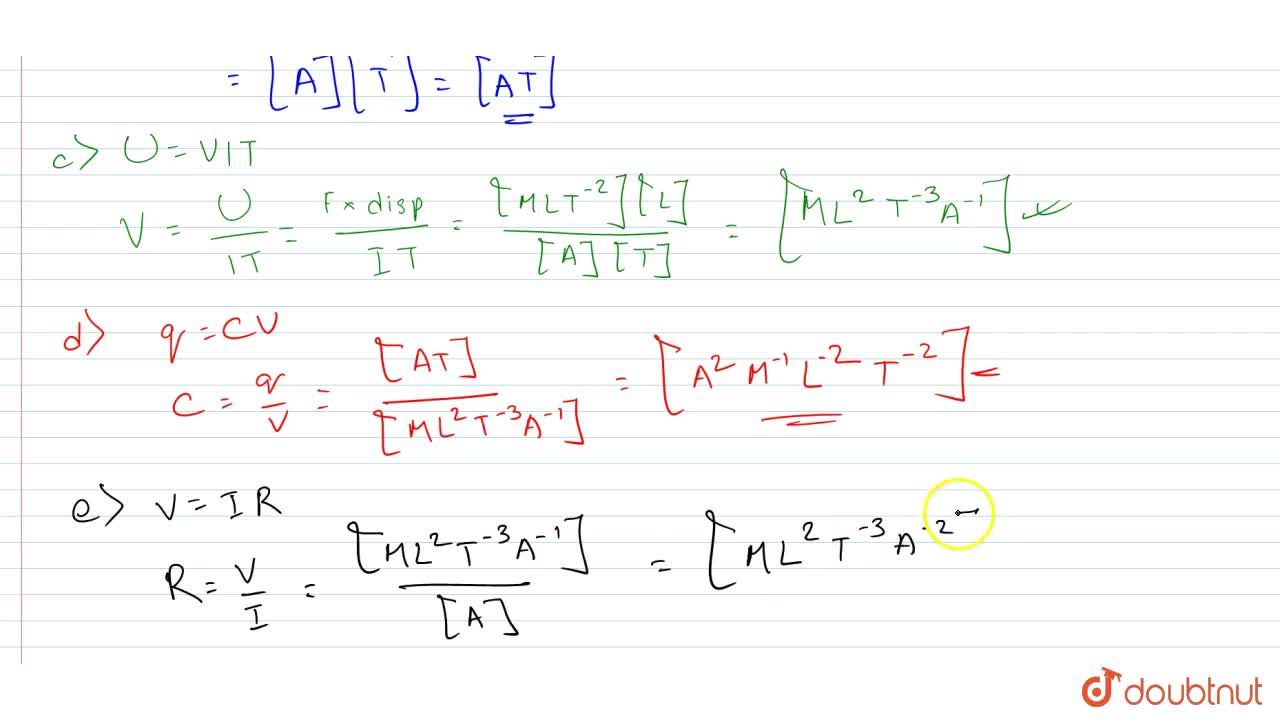 = [A][T] = [AT]
c> U = VIT
V = U/IT = F × disp/IT = [MLT⁻²][L]/[A][T] = [ML² T⁻³ A⁻¹]
d> q = CV
C = q/V = [AT]/[ML² T⁻³ A⁻¹] = [A² M⁻¹ L⁻² T⁻²]
e> V = IR
R = V/I = [ML² T⁻³ A⁻¹]/[A] = [ML² T⁻³ A⁻²
doubtnut